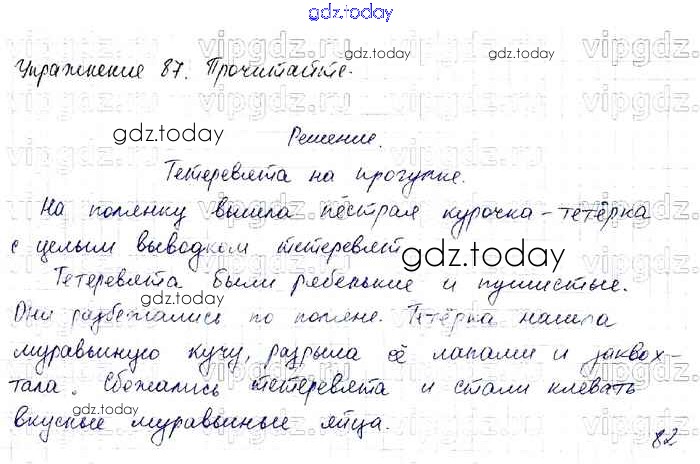 gdz.today
Упражнение 87. Прочитайте.
Решение.
Тетеревята на прогулке.
На полянку вышла пёстрая курочка-тетёрка
с целым выводком тетеревят
Тетеревята были рябенькие и пушистые.
Они разбежались по поляне. Тетёрка нашла
муравьиную кучу, разрыла её лапами и заквох-
тала. Сбежались тетеревята и стали клевать
вкусные муравьиные яйца.
82